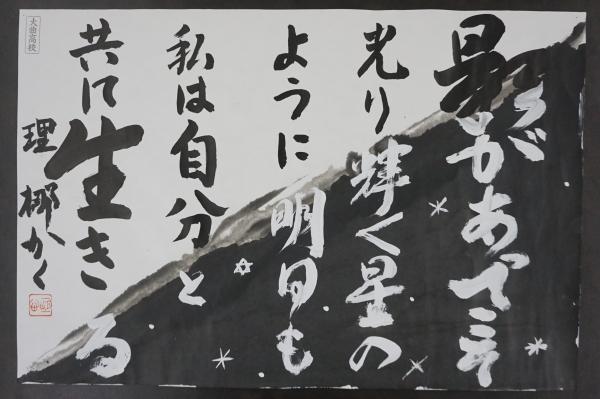 影があってこそ
光り輝く星の
ように明日も
私は自分と
共に生きる
理梛かく